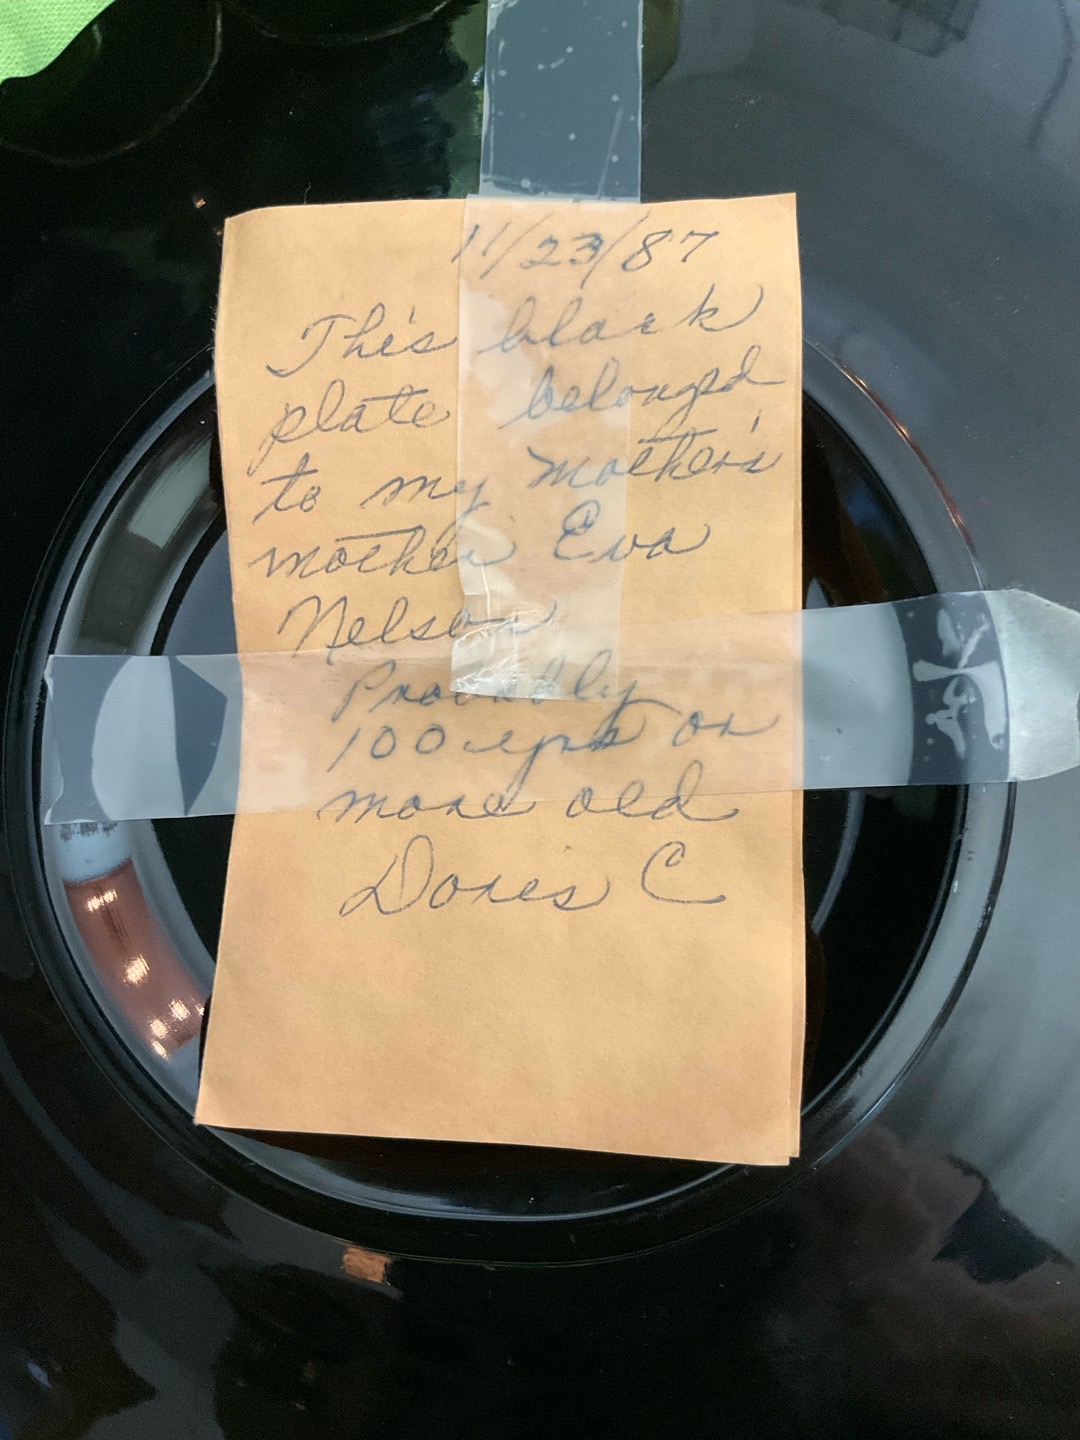 11/23/87
This black
plate belonged
to my mother's
mother Eva
Nelson
Probably
100 yrs or
more old
Doris C